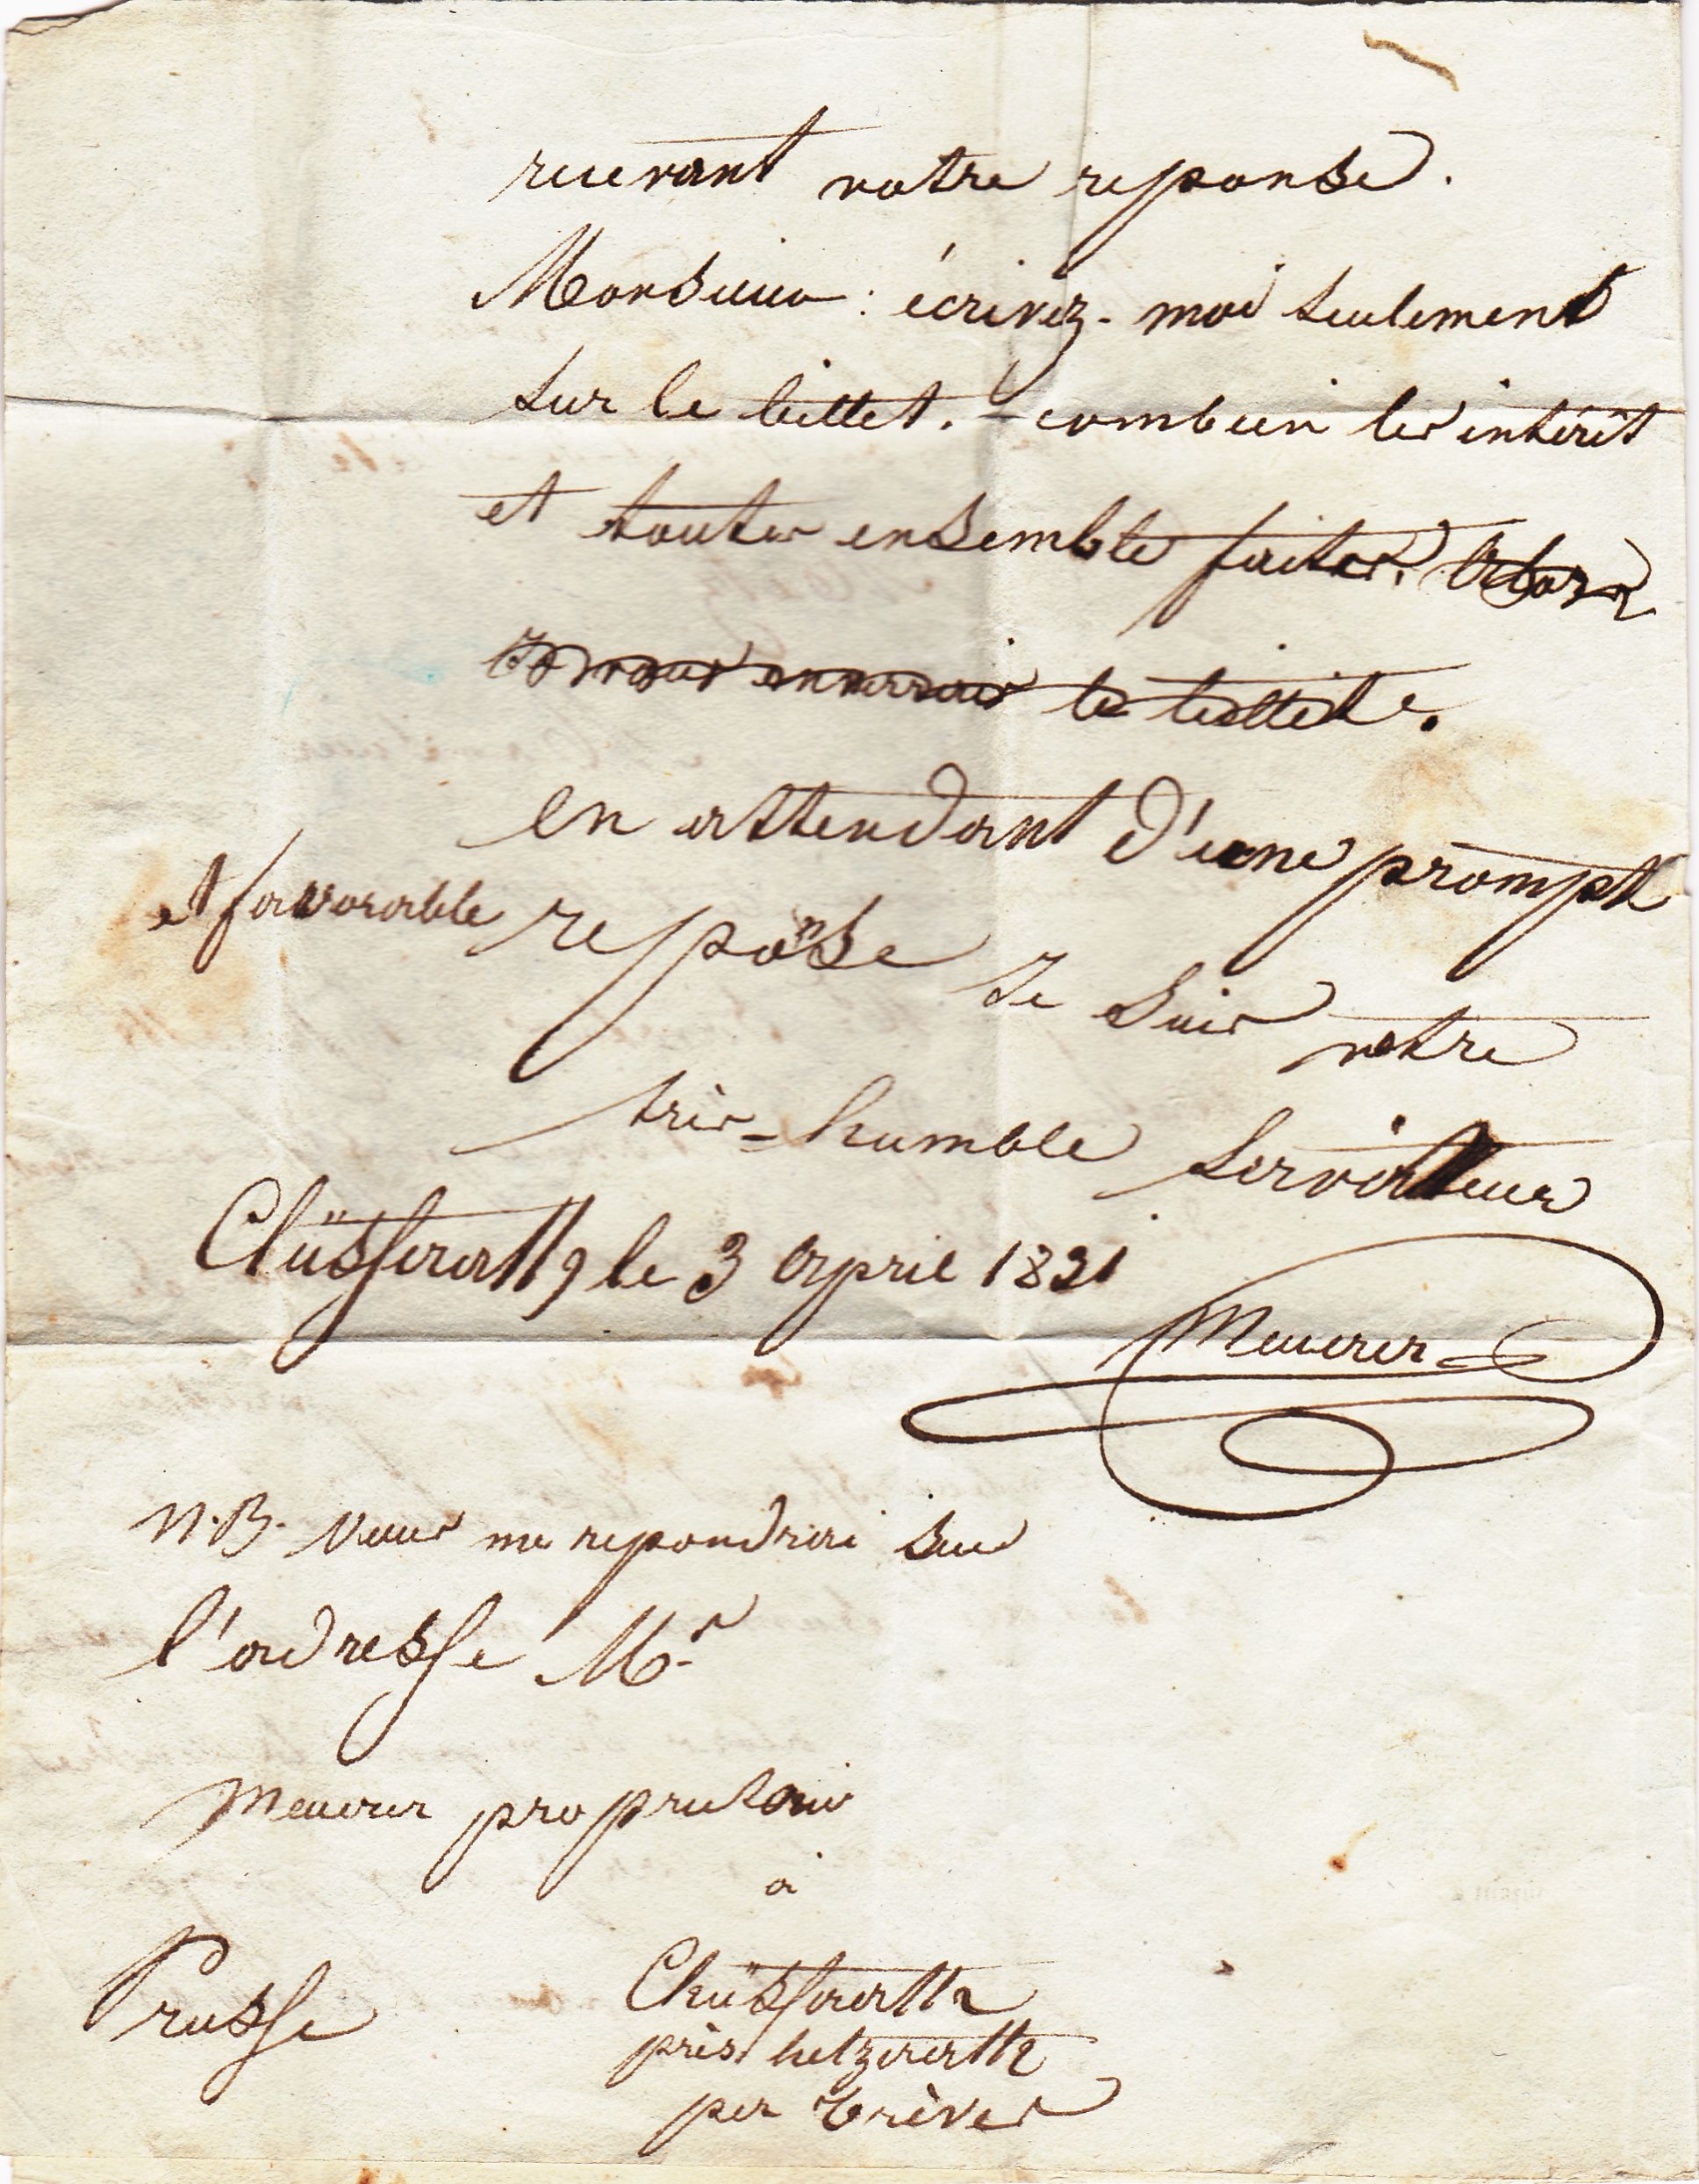 recevant votre reponse.
Monsieur: écrivez-moi seulement
sur le billet. - combien les intérêt
et toutes ensemble faites. Alors
Je vous enverrais le billet.
en attendant d'une prompte
et favorable reponse Je Suis votre
très-humble serviteur
Clüsserath, le 3 april 1831
Meuerer
N.B. Vous me repondrai Sur
l'adresse Mr
Meuerer proprietaire
à
Prusse Clüsserath
près hetzerath
per Trèves